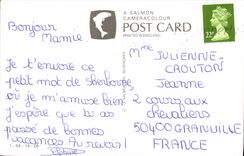 A SALMON
CAMERACOLOUR
POST CARD
PRINTED IN ENGLAND
Bonjour
Mamie
Je t'envoie ce
petit mot de Sherborne
où je m'amuse bien.
J'espère que tu as
passé de bonnes
vacances. Au revoir!
Mme JULIENNE-
CROUTON
Jeanne
2 cours aux
chevaliers
50400 GRANVILLE
FRANCE